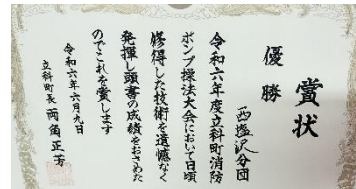 賞状
優勝
西塩沢分団
令和六年度立科町消防
ポンプ操法大会において日頃
修得した技術を遺憾なく
発揮し頭書の成績をおさめた
のでこれを賞します
令和六年六月九日
立科町長 両角正芳